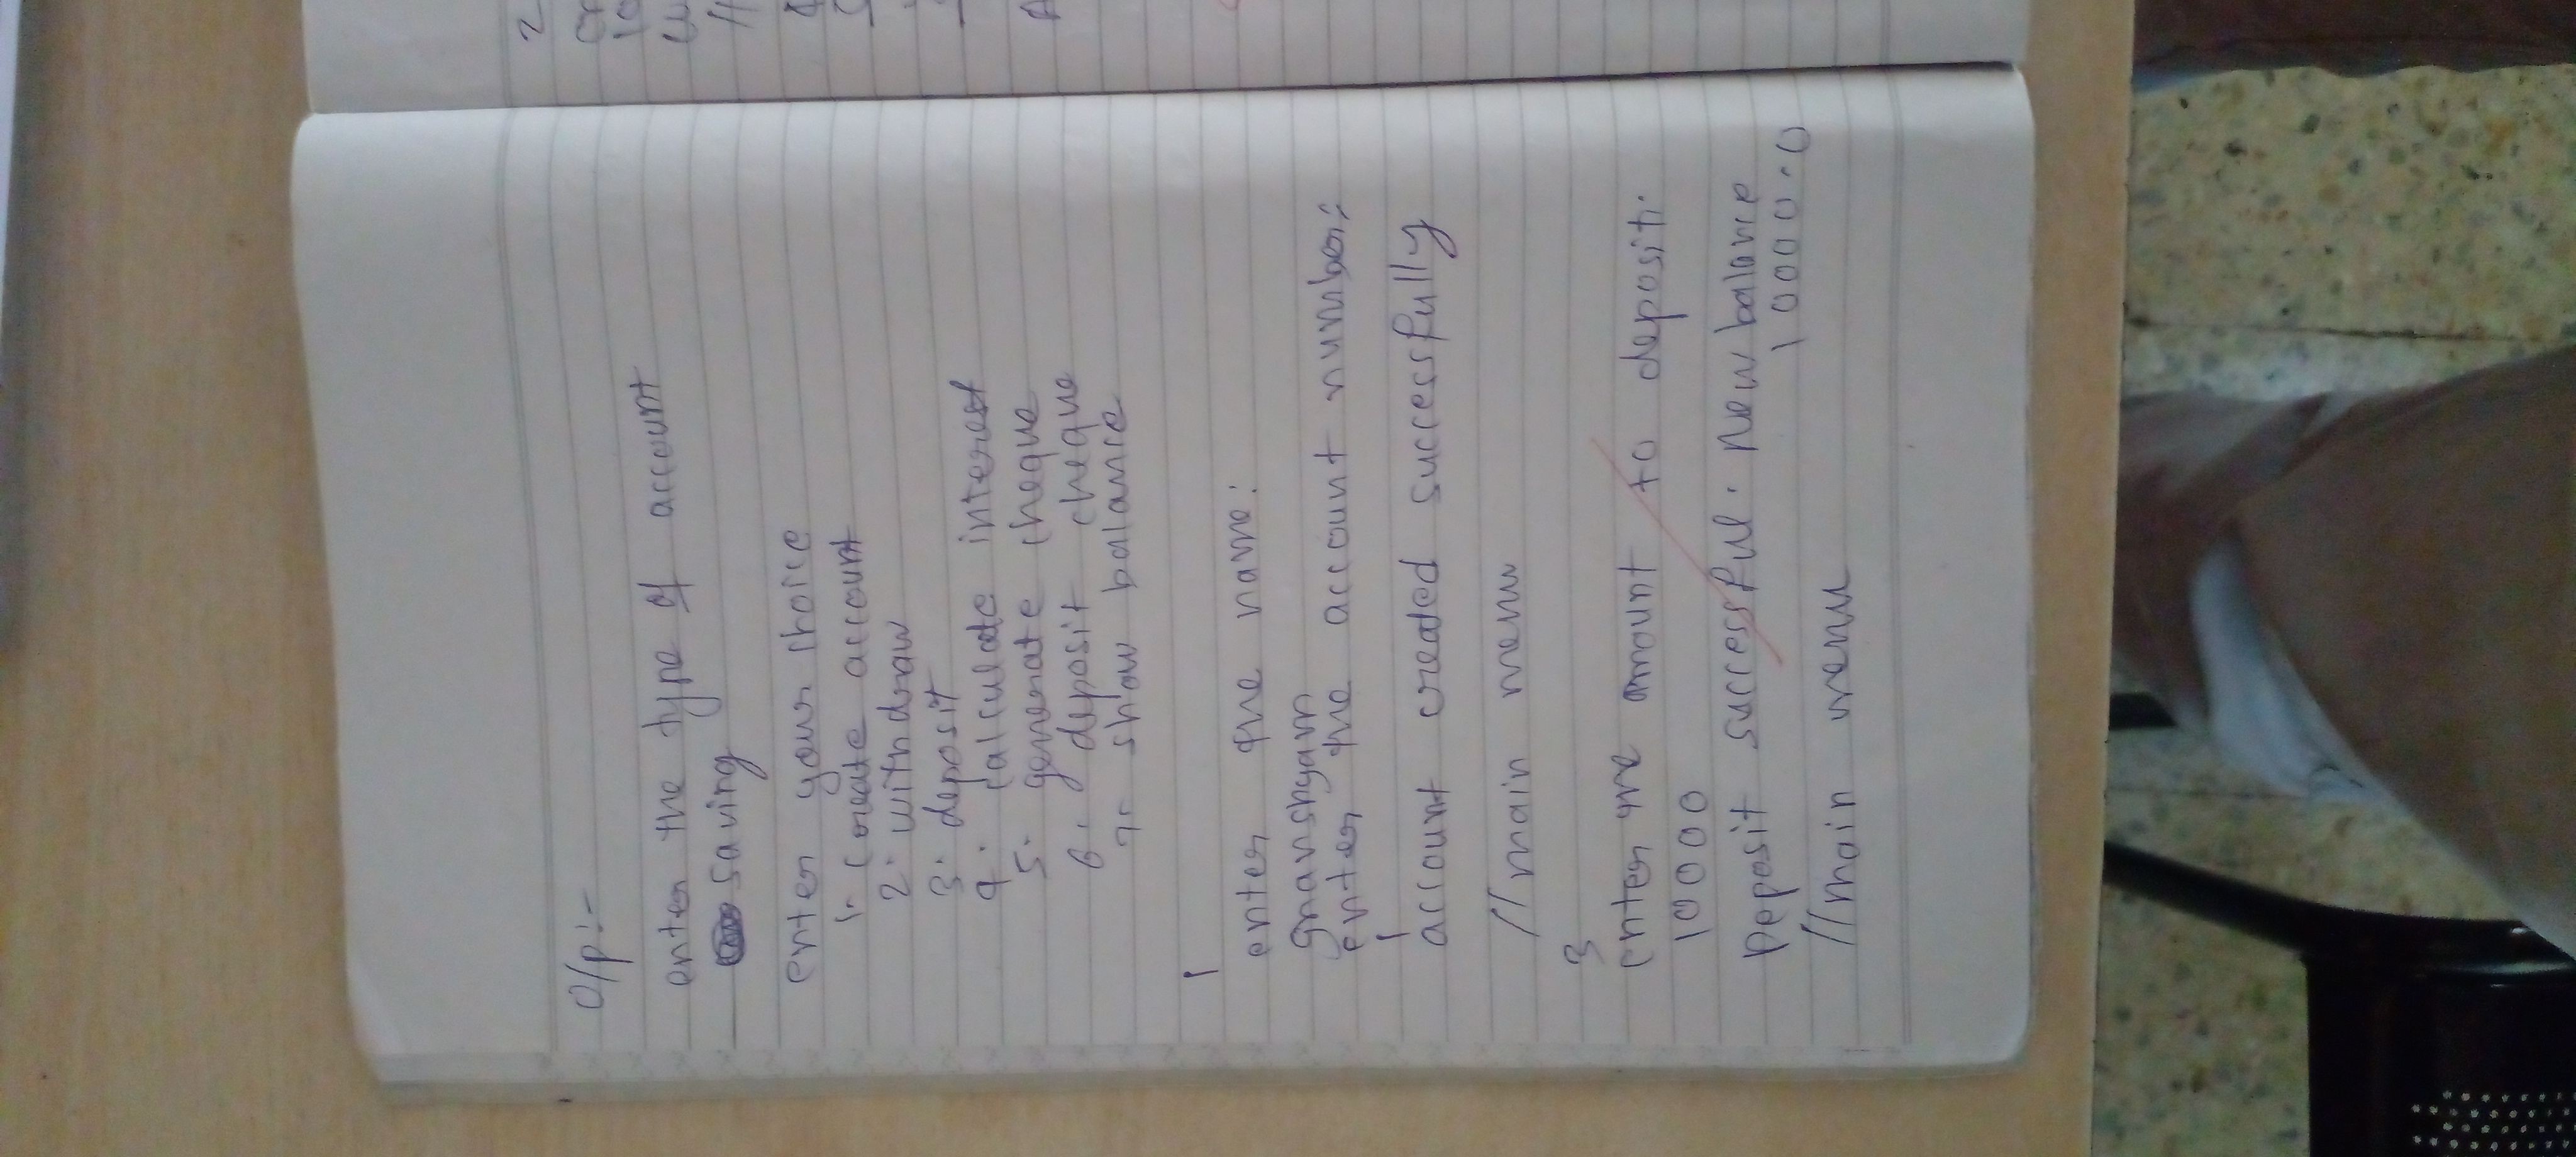 O/p:-
enter the type of account
saving
enter your choice
1. create account
2. withdraw
3. deposit
4. calculate interest
5. generate cheque
6. deposit cheque
7. show balance
1
enter the name:
gnanshyam
enter the account number:
1
account created successfully
// main menu
3
enter the amount to deposit:
10000
Deposit successful. New balance
10000.0
// main menu
2